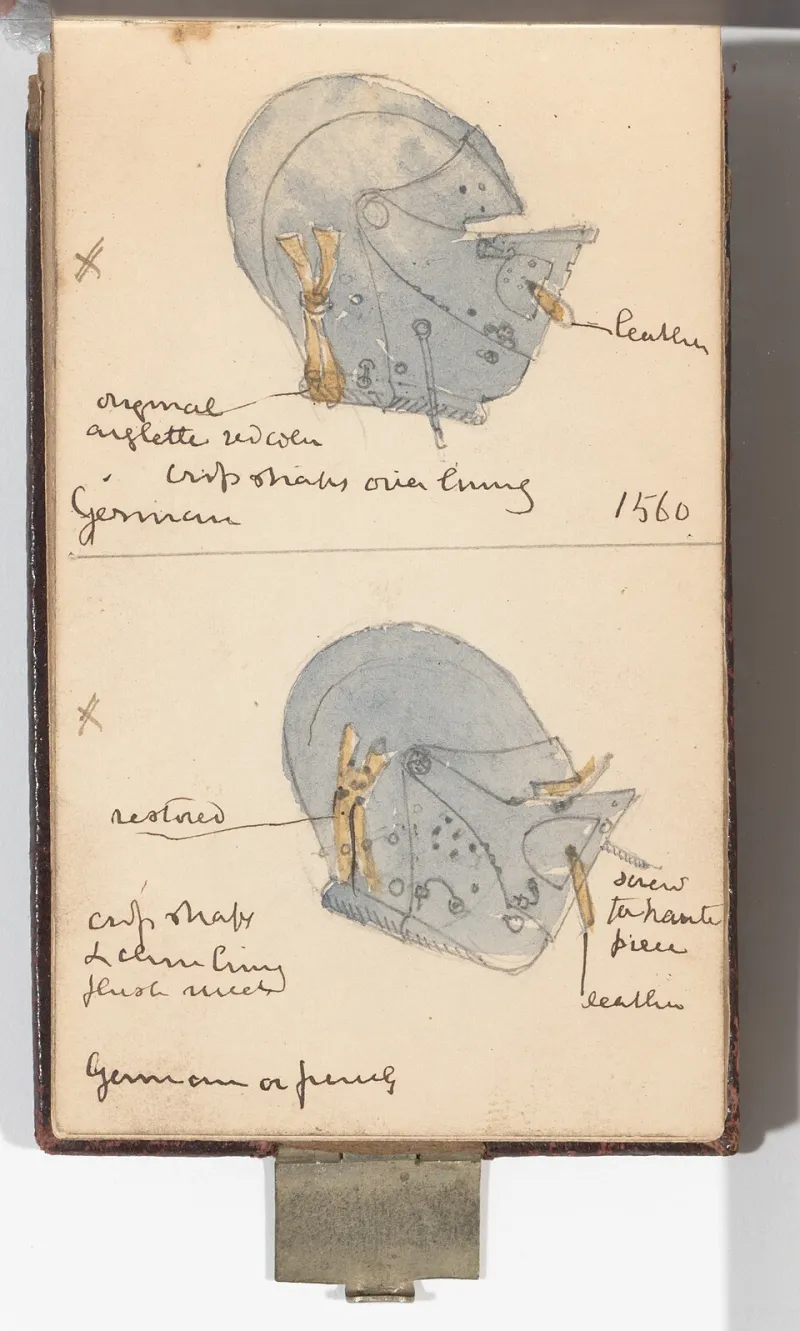 leather
original
aiglette red
straps over lining
German
1560
restored
screw
to haute
piece
straps
lining
flush
leather
German or french